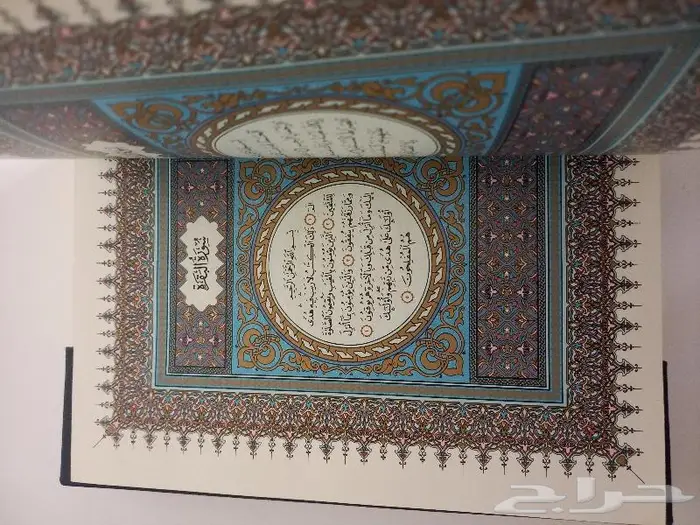 سُورَةُ البَقَرَةِ
بِسْمِ اللَّهِ الرَّحْمَٰنِ الرَّحِيمِ
الٓمٓ ١ ذَٰلِكَ الْكِتَٰبُ لَا رَيْبَ فِيهِ هُدًى
لِّلْمُتَّقِينَ ٢ الَّذِينَ يُؤْمِنُونَ بِالْغَيْبِ وَيُقِيمُونَ الصَّلَوٰةَ
وَمِمَّا رَزَقْنَٰهُمْ يُنفِقُونَ ٣ وَالَّذِينَ يُؤْمِنُونَ بِمَآ أُنزِلَ
إِلَيْكَ وَمَآ أُنزِلَ مِن قَبْلِكَ وَبِالْآخِرَةِ هُمْ يُوقِنُونَ ٤
أُولَٰٓئِكَ عَلَىٰ هُدًى مِّن رَّبِّهِمْ وَأُولَٰٓئِكَ
هُمُ الْمُفْلِحُونَ ٥
حراج